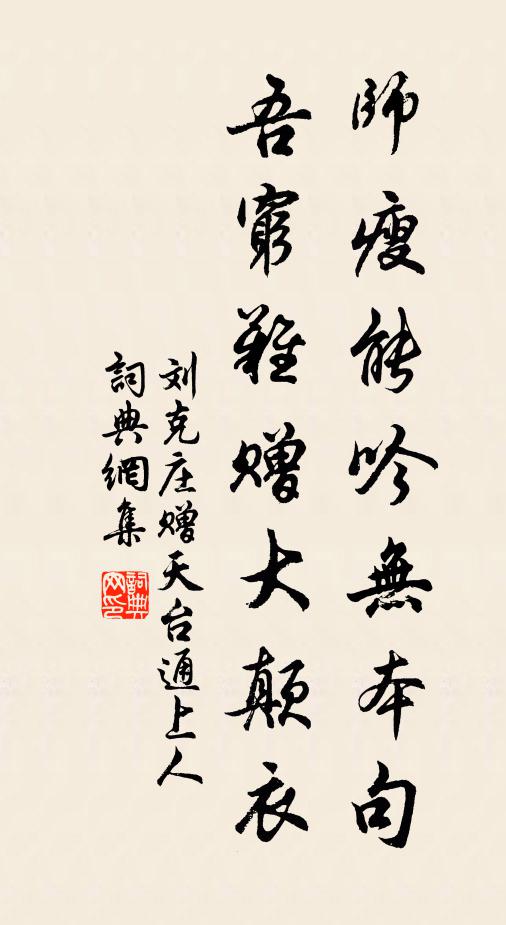 師瘦能吟無本句
吾窮難贈大顛衣
刘克庄赠天台通上人
詞典網集
詞典
网印